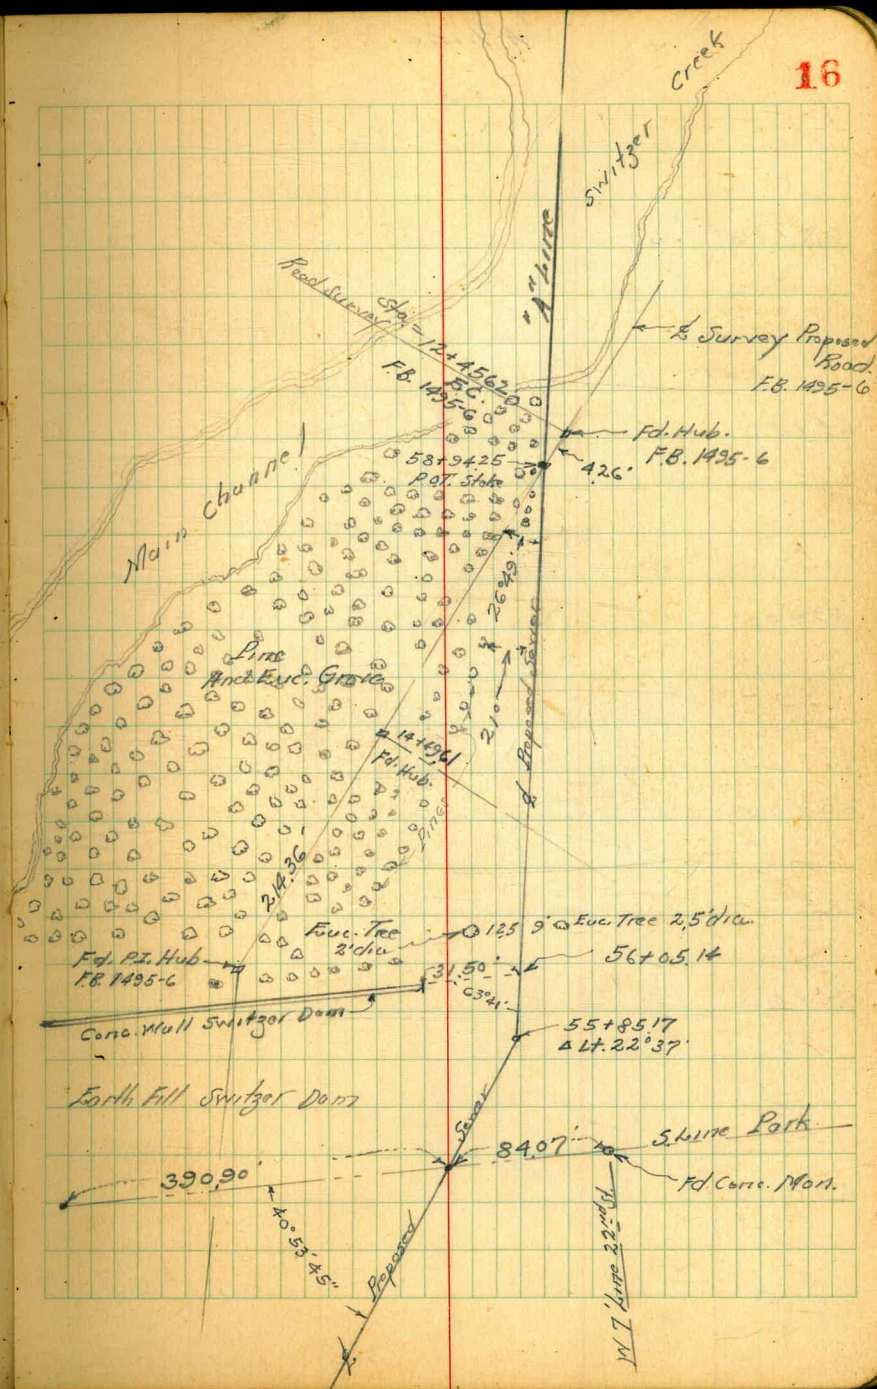 16
Switzer Creek
"A" Line
Road Survey
Sta. = 12+45.62
E.C.
F.B. 1495-6
℄ Survey Proposed
Road.
F.B. 1495-6
Fd. Hub.
F.B. 1495-6
4.26'
58+94.25
P.O.T. Stake
Main Channel
26°49'
Pine
And Euc. Grove
210
℄ Proposed Sewer
14+49.61
Fd. Hub.
Pines
214.36'
Euc. Tree
2' dia
12.5
9'
Euc. Tree 2.5' dia.
Fd. P.I. Hub
F.B. 1495-6
31.50'
63°41'
56+05.14
Conc. Wall Switzer Dam
55+85.17
Δ Lt. 22°37'
Earth Fill Switzer Dam
Sewer
84.07'
S. Line Park
390.90'
Fd. Conc. Mon.
40°53'45"
Proposed
℄
W'L'y Line 22nd St.